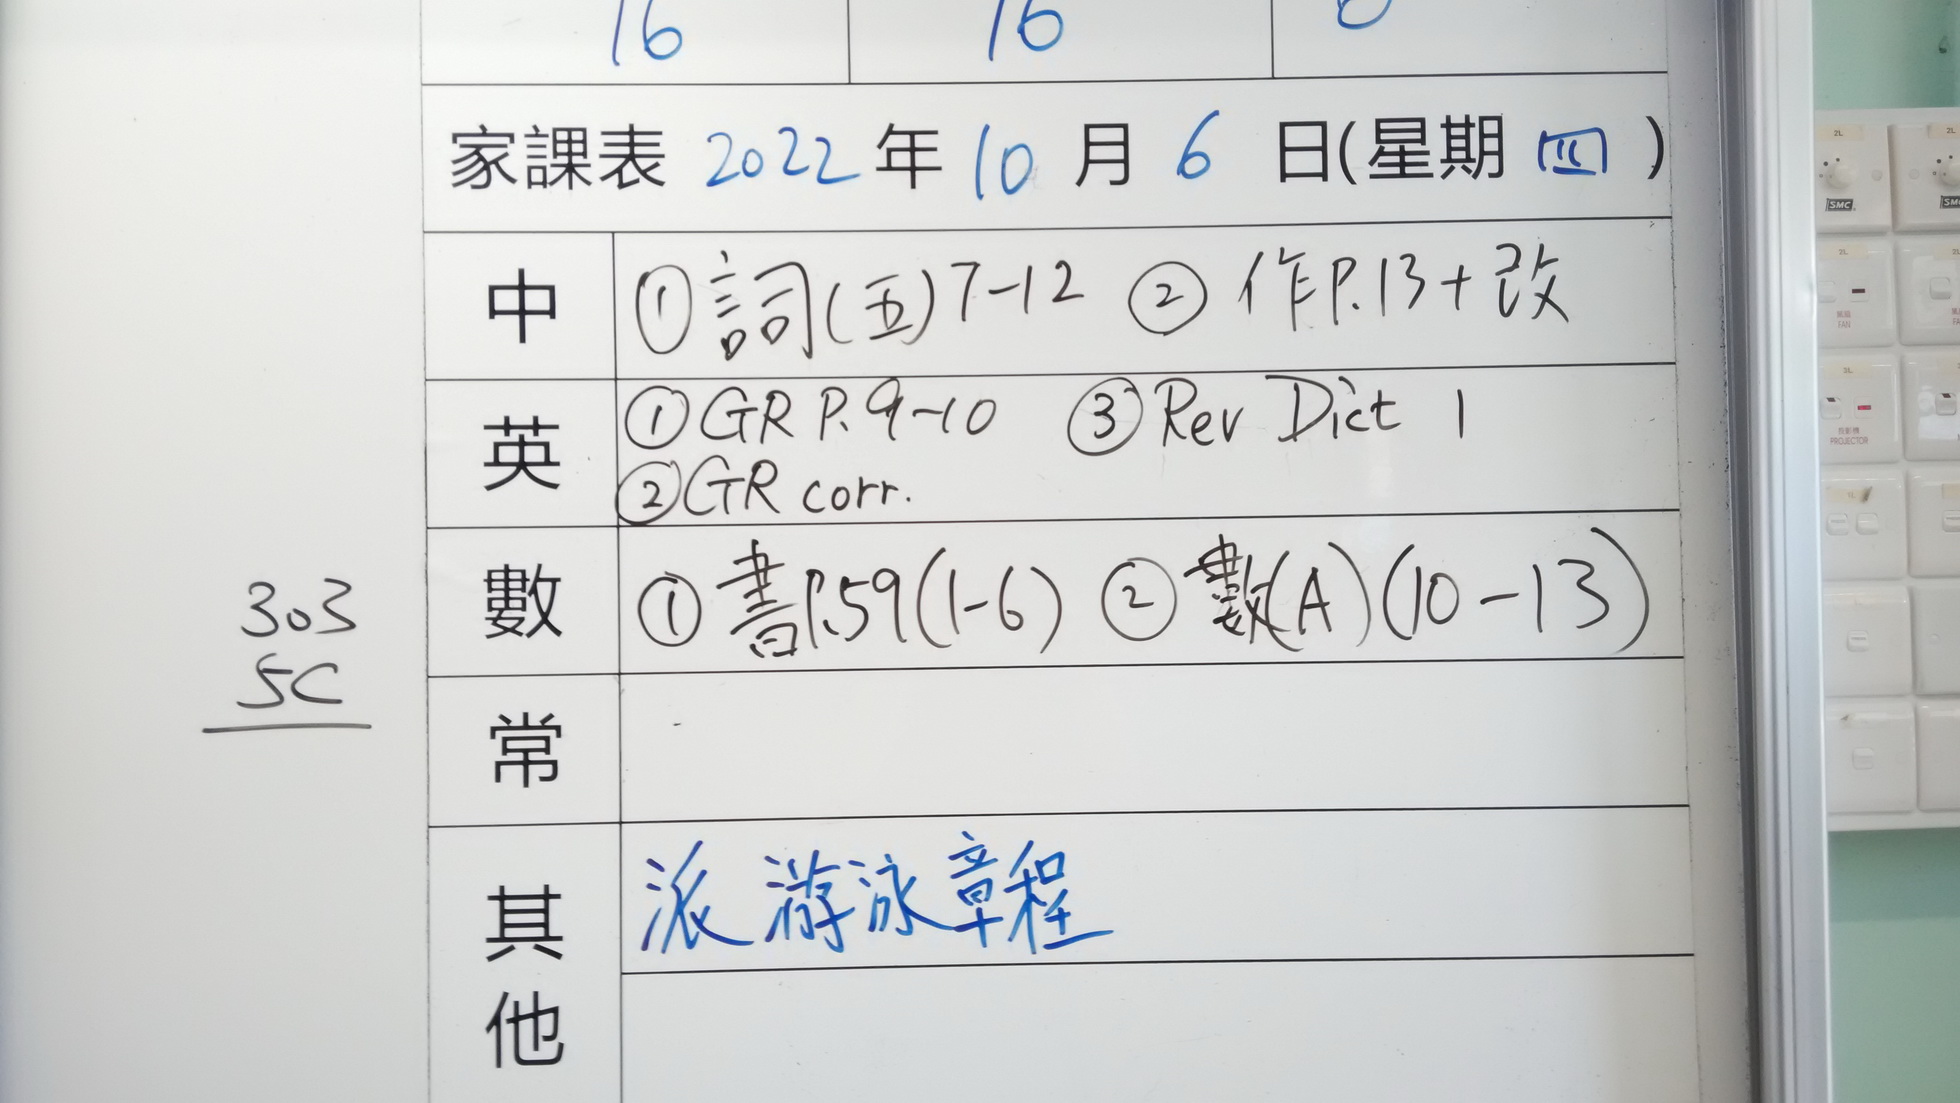 16 16
家課表 2022 年 10 月 6 日(星期 四 )
中 ①詞(五)7-12 ② 作P.13+改
英 ①GR P.9-10 ③Rev Dict 1
②GR corr.
數 ①書P.59(1-6) ②數(A)(10-13)
303
5C
常
其他 派游泳章程
2L
2L
SMC
2L
風扇
FAN
2L
投影機
PROJECTOR